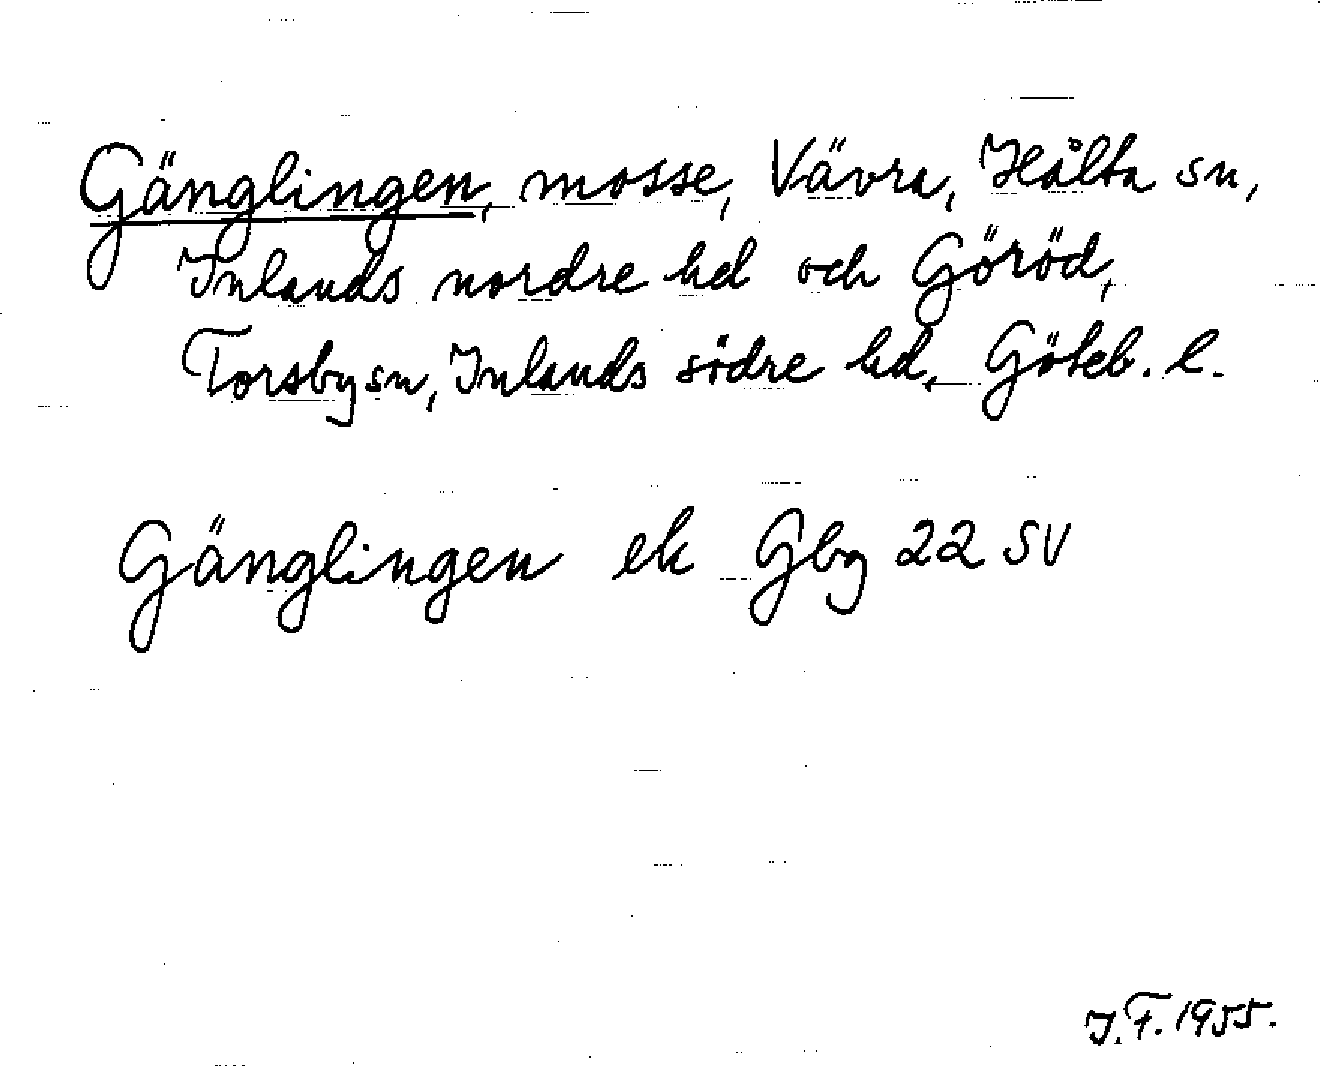 Gänglingen, mosse, Vävra, Hålta sn,
Inlands nordre hd och Göröd,
Torsby sn, Inlands södre hd, Göteb. l.
Gänglingen ek Gbg 22 SV
I.F. 1955.